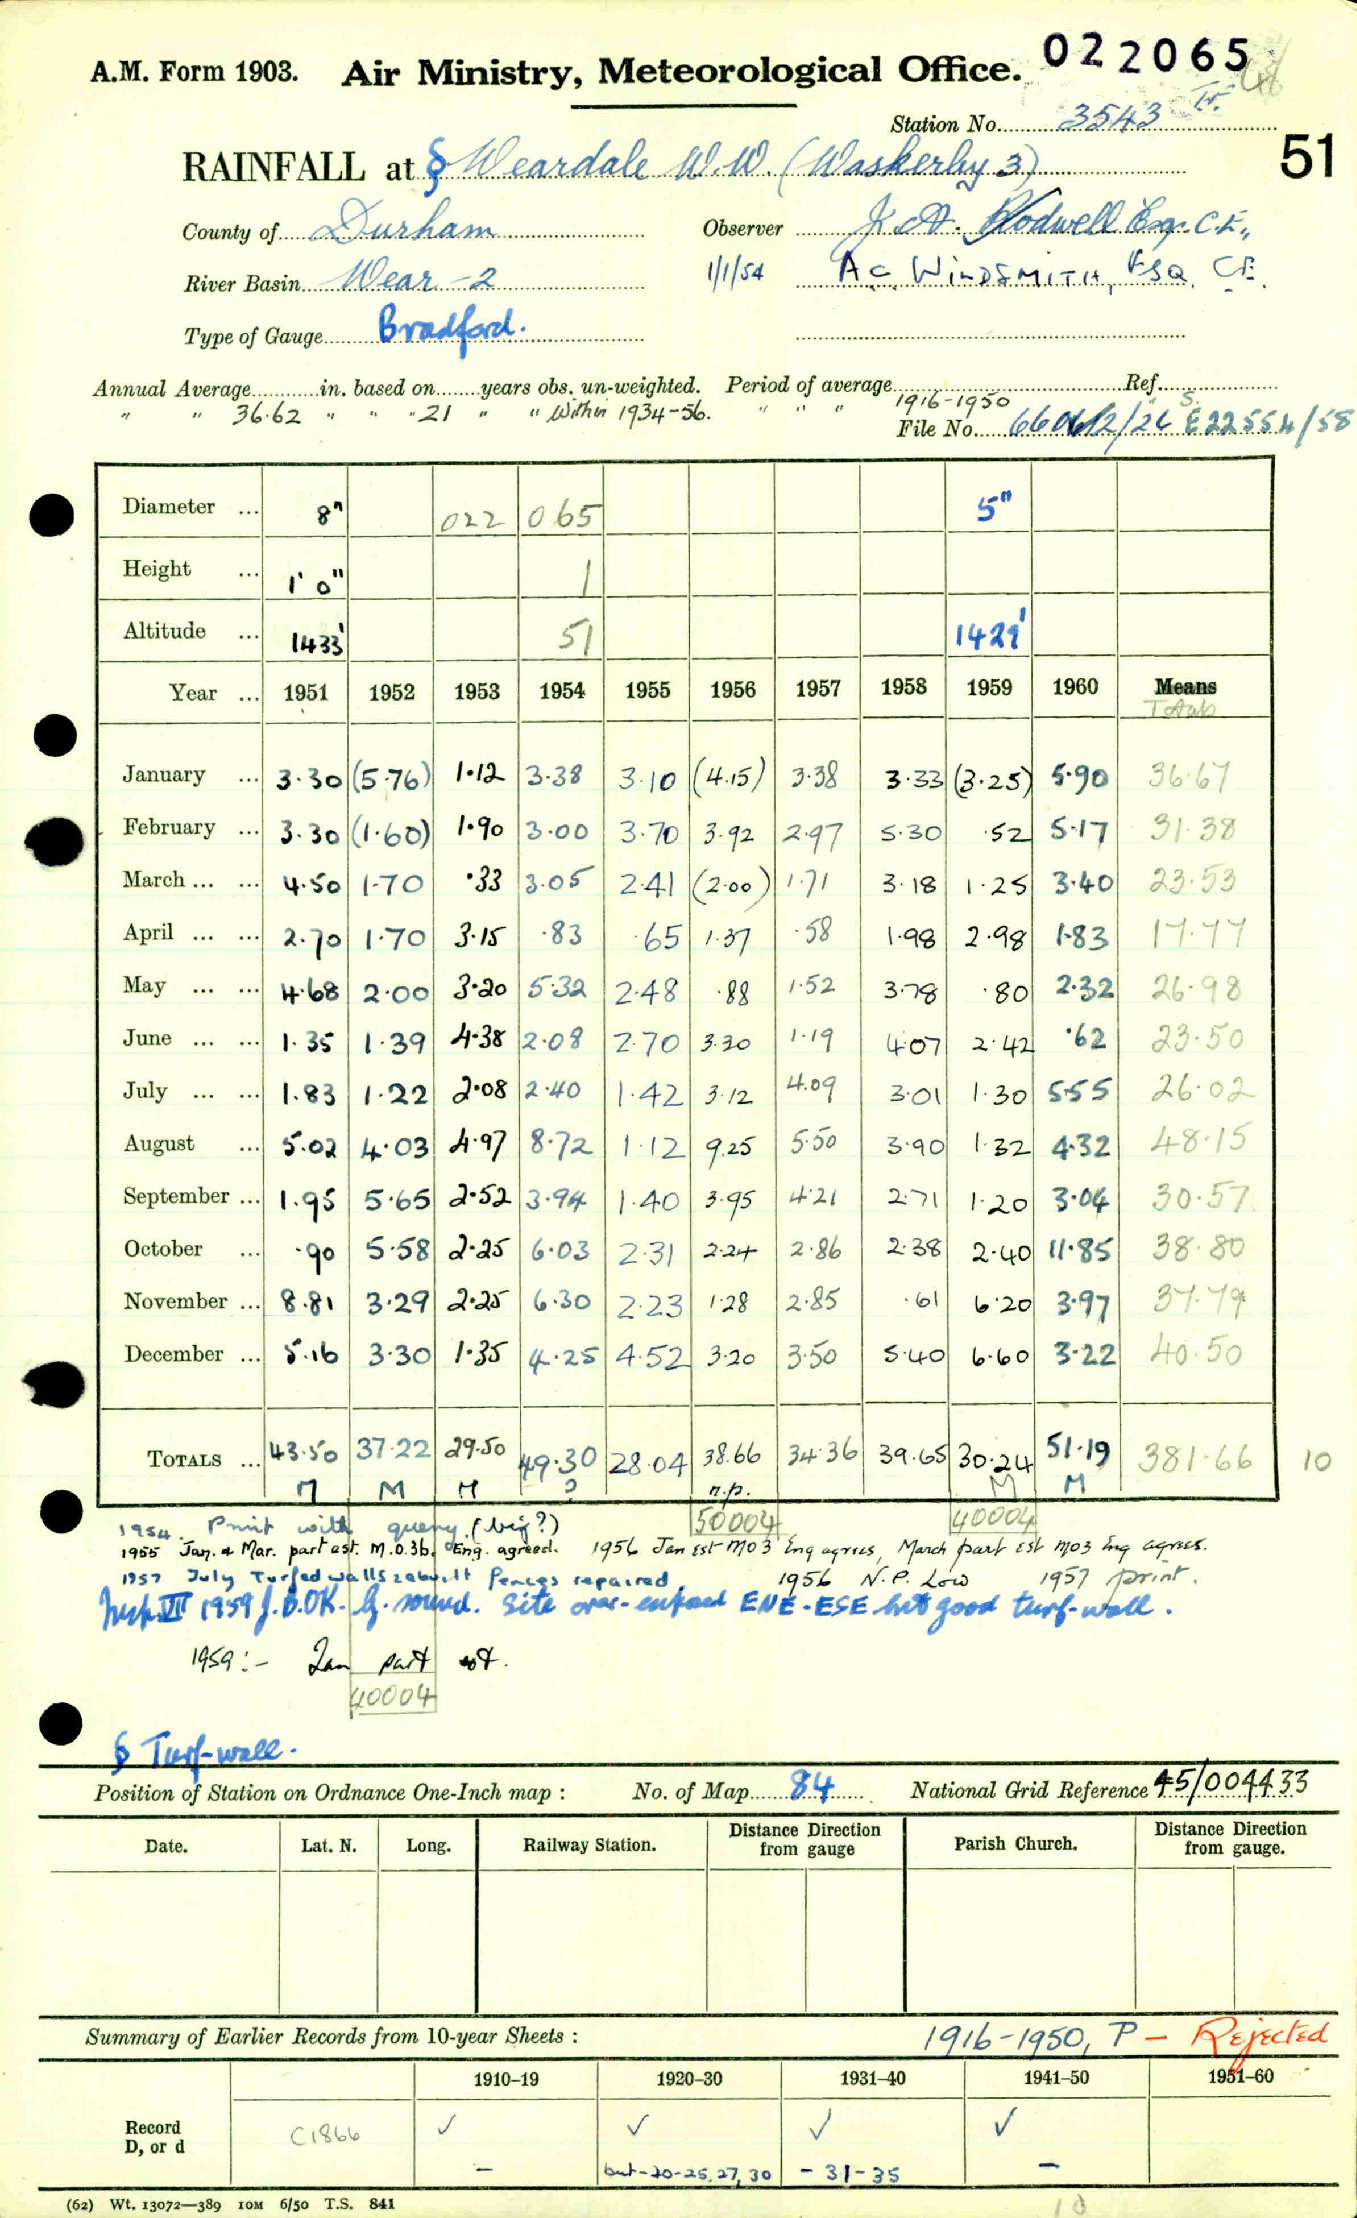 A.M. Form 1903. Air Ministry, Meteorological Office. 022065
48
Station No. 3543
51
RAINFALL at § Weardale W.W. (Waskerley 3)
County of Durham Observer J. A. Rodwell Esq. C.E.,
River Basin Wear - 2 1/1/54 A C WINDSMITH, ESQ. C.E.
Type of Gauge Bradford.
Annual Average in. based on years obs. un-weighted. Period of average Ref.
" " 36.62 " " " 21 " " Within 1934-56. " " " 1916-1950 S.
File No. E22554/58
Diameter ... 8" 022 065 5"
Height ... 1' 0" 1
Altitude ... 1433' 51 1429'
Year ... 1951 1952 1953 1954 1955 1956 1957 1958 1959 1960 Means
Totals
January ... 3.30 (5.76) 1.12 3.38 3.10 (4.15) 3.38 3.33 (3.25) 5.90 36.67
February ... 3.30 (1.60) 1.90 3.00 3.70 3.92 2.97 5.30 .52 5.17 31.38
March ... ... 4.50 1.70 .33 3.05 2.41 (2.00) 1.71 3.18 1.25 3.40 23.53
April ... ... 2.70 1.70 3.15 .83 .65 1.37 .58 1.98 2.98 1.83 17.77
May ... ... 4.68 2.00 3.20 5.32 2.48 .88 1.52 3.78 .80 2.32 26.98
June ... ... 1.35 1.39 4.38 2.08 2.70 3.30 1.19 4.07 2.42 .62 23.50
July ... ... 1.83 1.22 2.08 2.40 1.42 3.12 4.09 3.01 1.30 5.55 26.02
August ... 5.02 4.03 4.97 8.72 1.12 9.25 5.50 3.90 1.32 4.32 48.15
September ... 1.95 5.65 2.52 3.94 1.40 3.95 4.21 2.71 1.20 3.04 30.57
October ... .90 5.58 2.25 6.03 2.31 2.24 2.86 2.38 2.40 11.85 38.80
November ... 8.81 3.29 2.25 6.30 2.23 1.28 2.85 .61 6.20 3.97 37.79
December ... 5.16 3.30 1.35 4.25 4.52 3.20 3.50 5.40 6.60 3.22 40.50
TOTALS ... 43.50 37.22 29.50 49.30 28.04 38.66 34.36 39.65 30.24 51.19 381.66 10
M M M ? n.p. M M
50004 40004
1954. Print with query (big?)
1955 Jan. & Mar. part est. M.O.3b. Eng. agreed. 1956 Jan Est MO3 Eng agrees, March part est MO3 Eng agrees.
1957 July Turfed walls rebuilt Fences repaired 1956 N.P. Low 1957 print.
Insp. VII 1959 J.B. OK. G. sound. Site over-exposed ENE-ESE but good turf-wall.
1959:- Jan part est.
40004
§ Turf-wall.
Position of Station on Ordnance One-Inch map : No. of Map 84 National Grid Reference 45/004433
Date. Lat. N. Long. Railway Station. Distance from gauge Direction Parish Church. Distance Direction from gauge.
Summary of Earlier Records from 10-year Sheets : 1916-1950, P - Rejected
1910–19 1920–30 1931–40 1941–50 1951–60
Record D, or d C1866 ✓ ✓ ✓ ✓
- but-20-25, 27, 30 - 31-35 -
(62) Wt. 13072—389 10M 6/50 T.S. 841
10